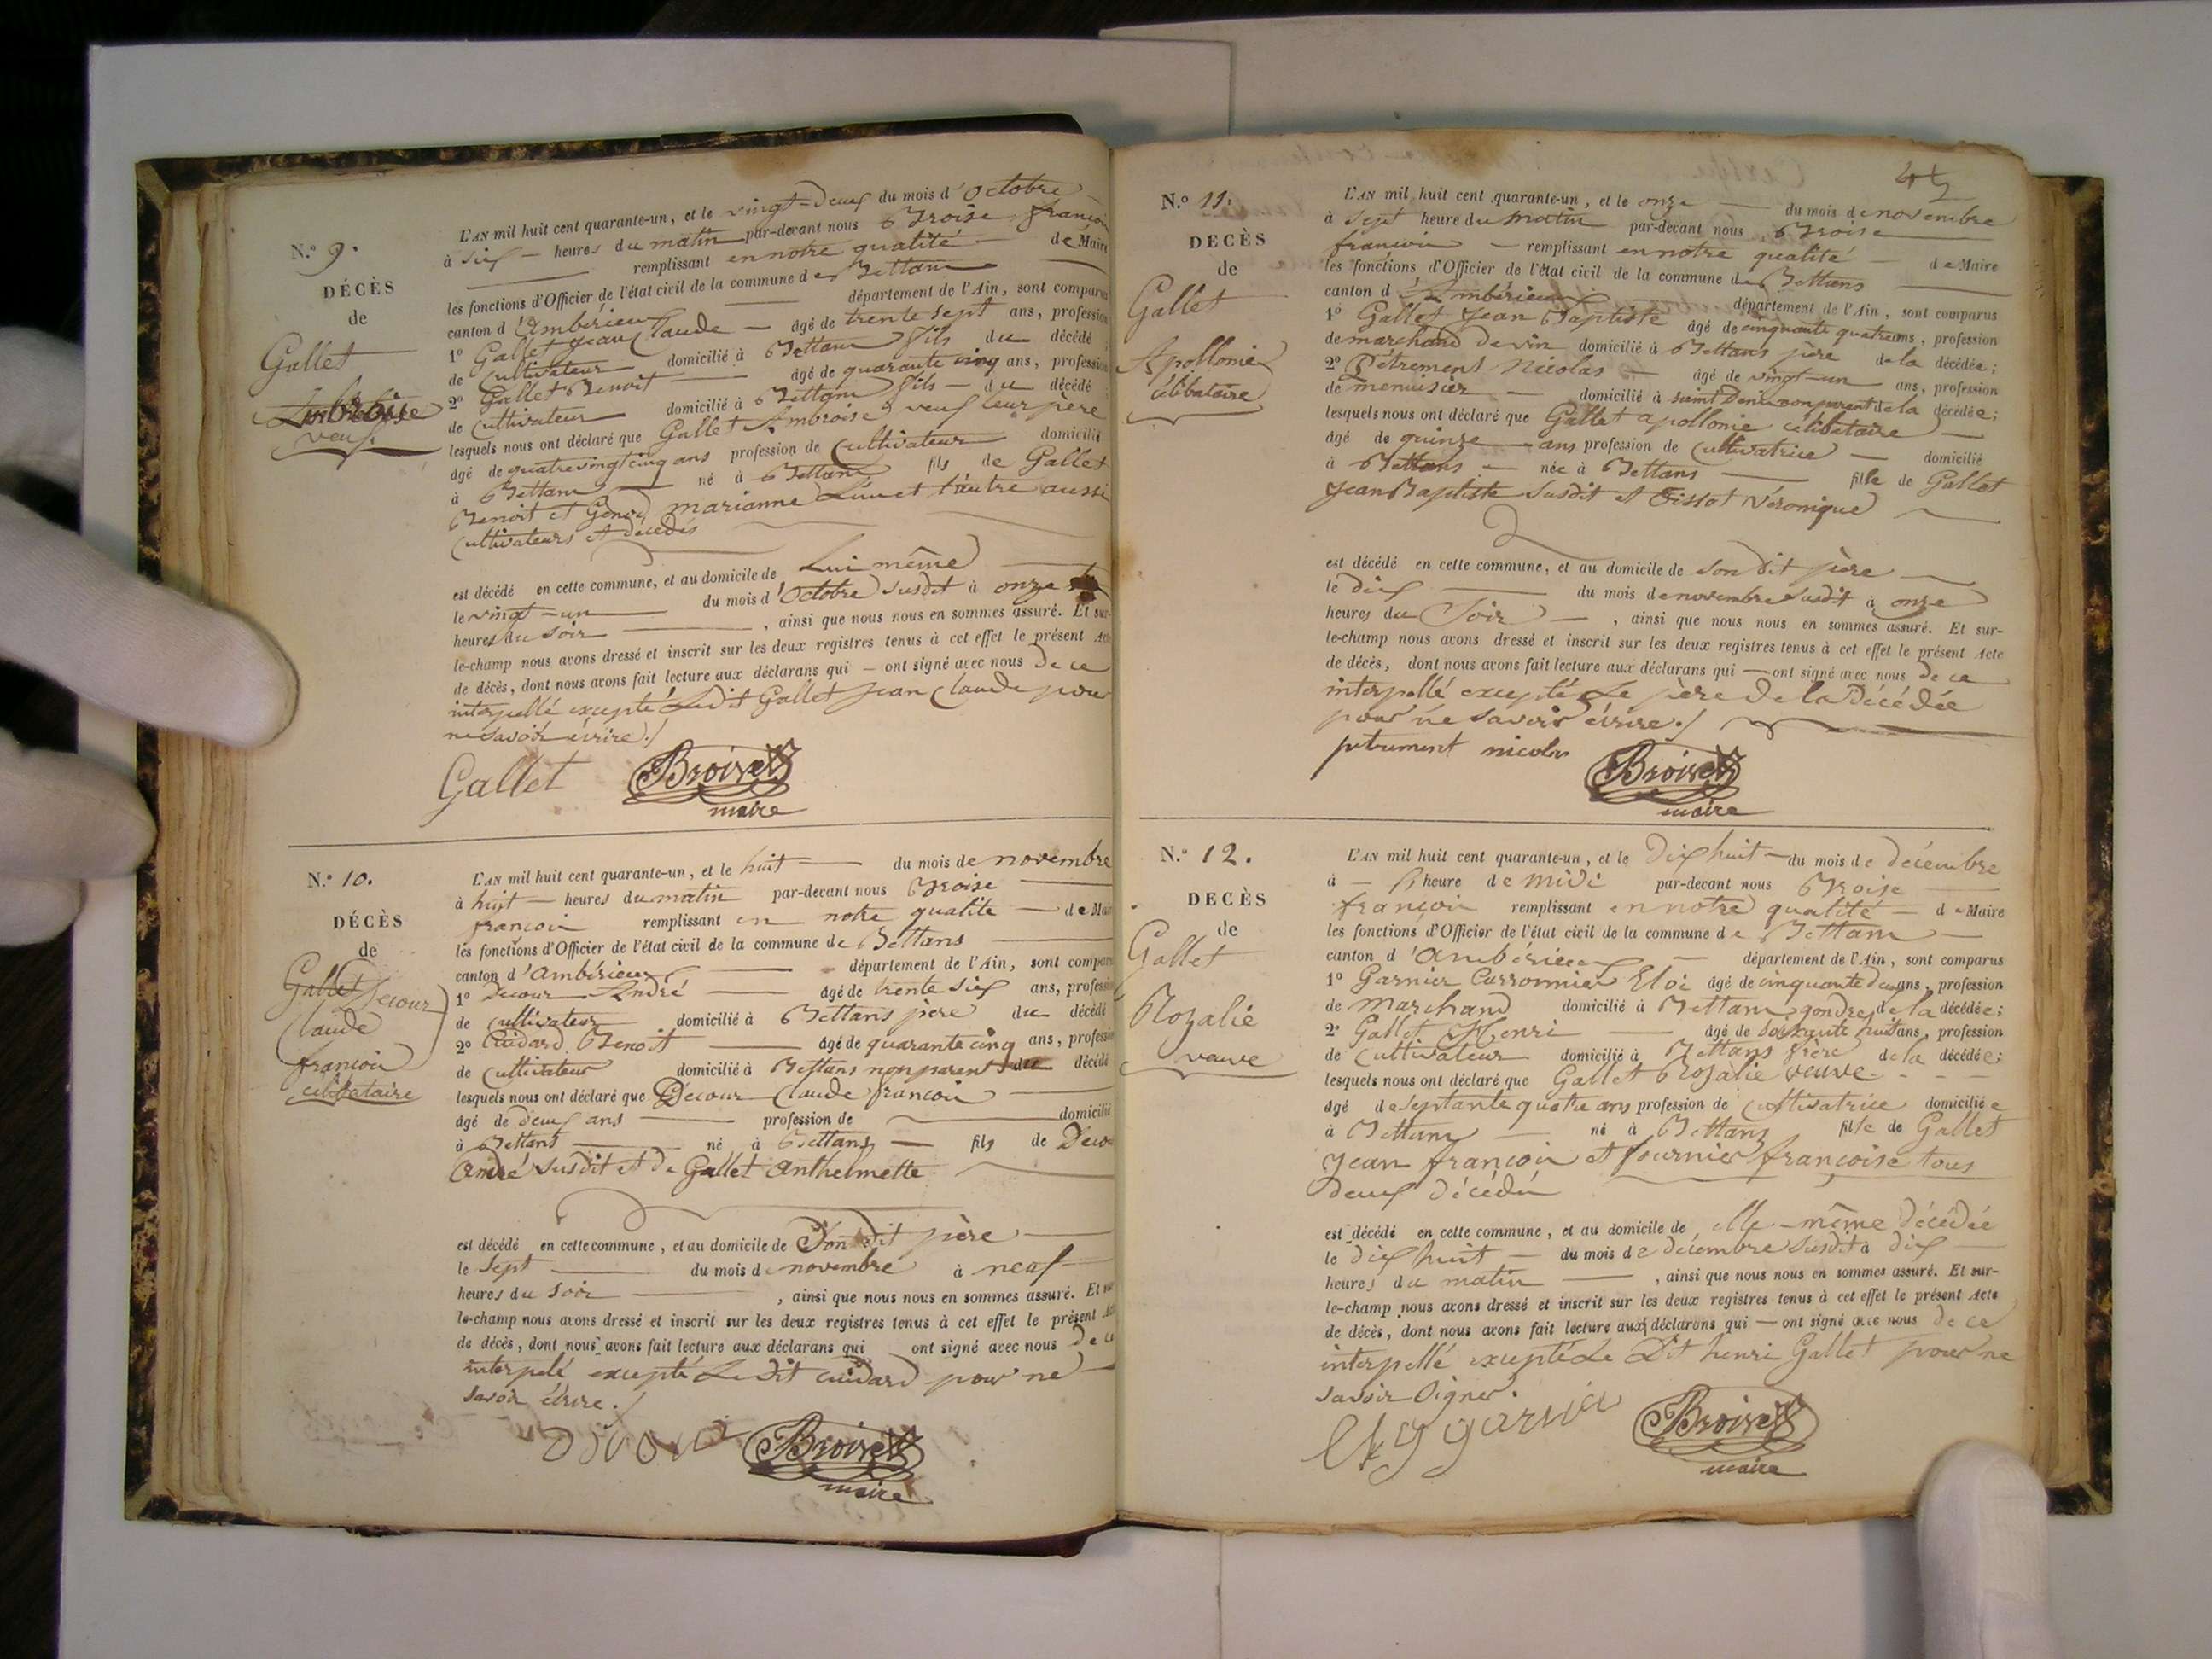 N.º 9.
DÉCÈS
de
Gallet
Ambroise
veuf
L'AN mil huit cent quarante-un, et le vingt-deux du mois d'Octobre
à six heures du matin par-devant nous Broise françois
remplissant en notre qualité de Maire
les fonctions d'Officier de l'état civil de la commune de Bettans
canton d'Ambérieux département de l'Ain, sont comparus
1º Gallet Jean Claude âgé de trente sept ans, profession
de Cultivateur domicilié à Bettans fils du décédé
2º Gallet Benoit âgé de quarante cinq ans, profession
de Cultivateur domicilié à Bettans fils du décédé
lesquels nous ont déclaré que Gallet Ambroise veuf leur père
âgé de quatrevingt cinq ans profession de Cultivateur domicilié
à Bettans né à Bettans fils de Gallet
Benoit et Genod marianne L'un et l'autre aussi
Cultivateurs et décédés
est décédé en cette commune, et au domicile de Lui même
le vingt-un du mois d'Octobre susdit à onze
heures du soir, ainsi que nous nous en sommes assuré. Et sur-
le-champ nous avons dressé et inscrit sur les deux registres tenus à cet effet le présent Acte
de décès, dont nous avons fait lecture aux déclarans qui ont signé avec nous de ce
interpellé excepté Ledit Gallet Jean Claude pour
ne savoir écrire ./
Gallet Broise
maire
N.º 10.
DÉCÈS
de
Gallet Decour
Claude
françois
célibataire
L'AN mil huit cent quarante-un, et le huit du mois de novembre
à huit heures du matin par-devant nous Broise
françois remplissant en notre qualité de Maire
les fonctions d'Officier de l'état civil de la commune de Bettans
canton d'Ambérieux département de l'Ain, sont comparus
1º Decour André âgé de trente six ans, profession
de cultivateur domicilié à Bettans père du décédé
2º Cuidard Benoit âgé de quarante cinq ans, profession
de cultivateur domicilié à Bettans non parent du décédé
lesquels nous ont déclaré que Decour Claude françois
âgé de deux ans profession de domicilié
à Bettans né à Bettans fils de Decour
André susdit et de Gallet Anthelmette
est décédé en cette commune, et au domicile de Son dit père
le sept du mois de novembre à neuf
heures du soir, ainsi que nous nous en sommes assuré. Et sur
le-champ nous avons dressé et inscrit sur les deux registres tenus à cet effet le présent Acte
de décès, dont nous avons fait lecture aux déclarans qui ont signé avec nous de ce
interpelé excepté Le dit cuidard pour ne
savoir écrire ./
Broise
maire
N.º 11.
DECÈS
de
Gallet
Apollonie
célibataire
L'AN mil huit cent quarante-un, et le onze du mois de novembre
à sept heure du matin par-devant nous Broise
françois remplissant en notre qualité de Maire
les fonctions d'Officier de l'état civil de la commune de Bettans
canton d'Ambérieux département de l'Ain, sont comparus
1º Gallet Jean Baptiste âgé de cinquante quatre ans, profession
de marchand de vin domicilié à Bettans père de la décédée;
2º Pétrement Nicolas âgé de vingt-un ans, profession
de menuisier domicilié à saint Denis non parent de la décédée;
lesquels nous ont déclaré que Gallet apollonie célibataire
âgé de quinze ans profession de Cultivatrice domicilié
à Bettans née à Bettans fille de Gallet
Jean Baptiste susdit et Tissot Véronique
est décédé en cette commune, et au domicile de son dit père
le dix du mois de novembre susdit à onze
heures du Soir, ainsi que nous nous en sommes assuré. Et sur-
le-champ nous avons dressé et inscrit sur les deux registres tenus à cet effet le présent Acte
de décès, dont nous avons fait lecture aux déclarans qui ont signé avec nous de ce
interpellé excepté Le père de la Décédée
pour ne savoir écrire ./
petrement nicolas Broise
maire
N.º 12.
DECÈS
de
Gallet
Rozalie
veuve
L'AN mil huit cent quarante-un, et le Dix huit du mois de décembre
à heure de midi par-devant nous Broise
françois remplissant en notre qualité de Maire
les fonctions d'Officier de l'état civil de la commune de Bettans
canton d'Ambérieux département de l'Ain, sont comparus
1º Garnier Carronnier Eloi âgé de cinquante deux ans, profession
de Marchand domicilié à Bettans gendre de la décédée;
2º Gallet Henri âgé de soixante huit ans, profession
de Cultivateur domicilié à Bettans frère de la décédée;
lesquels nous ont déclaré que Gallet Rozalie veuve
âgé de septante quatre ans profession de Cultivatrice domiciliée
à Bettans né à Bettans fille de Gallet
Jean françois et fournier françoise tous
deux décédés
est décédé en cette commune, et au domicile de elle-même décédée
le dix huit du mois de décembre susdit à dix
heures du matin, ainsi que nous nous en sommes assuré. Et sur-
le-champ nous avons dressé et inscrit sur les deux registres tenus à cet effet le présent Acte
de décès, dont nous avons fait lecture aux déclarans qui ont signé avec nous de ce
interpellé excepté Le Dit henri Gallet pour ne
savoir Signer.
Broise
maire